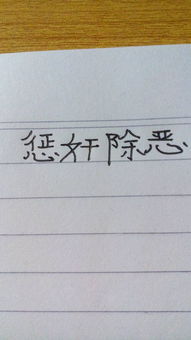 惩奸除恶